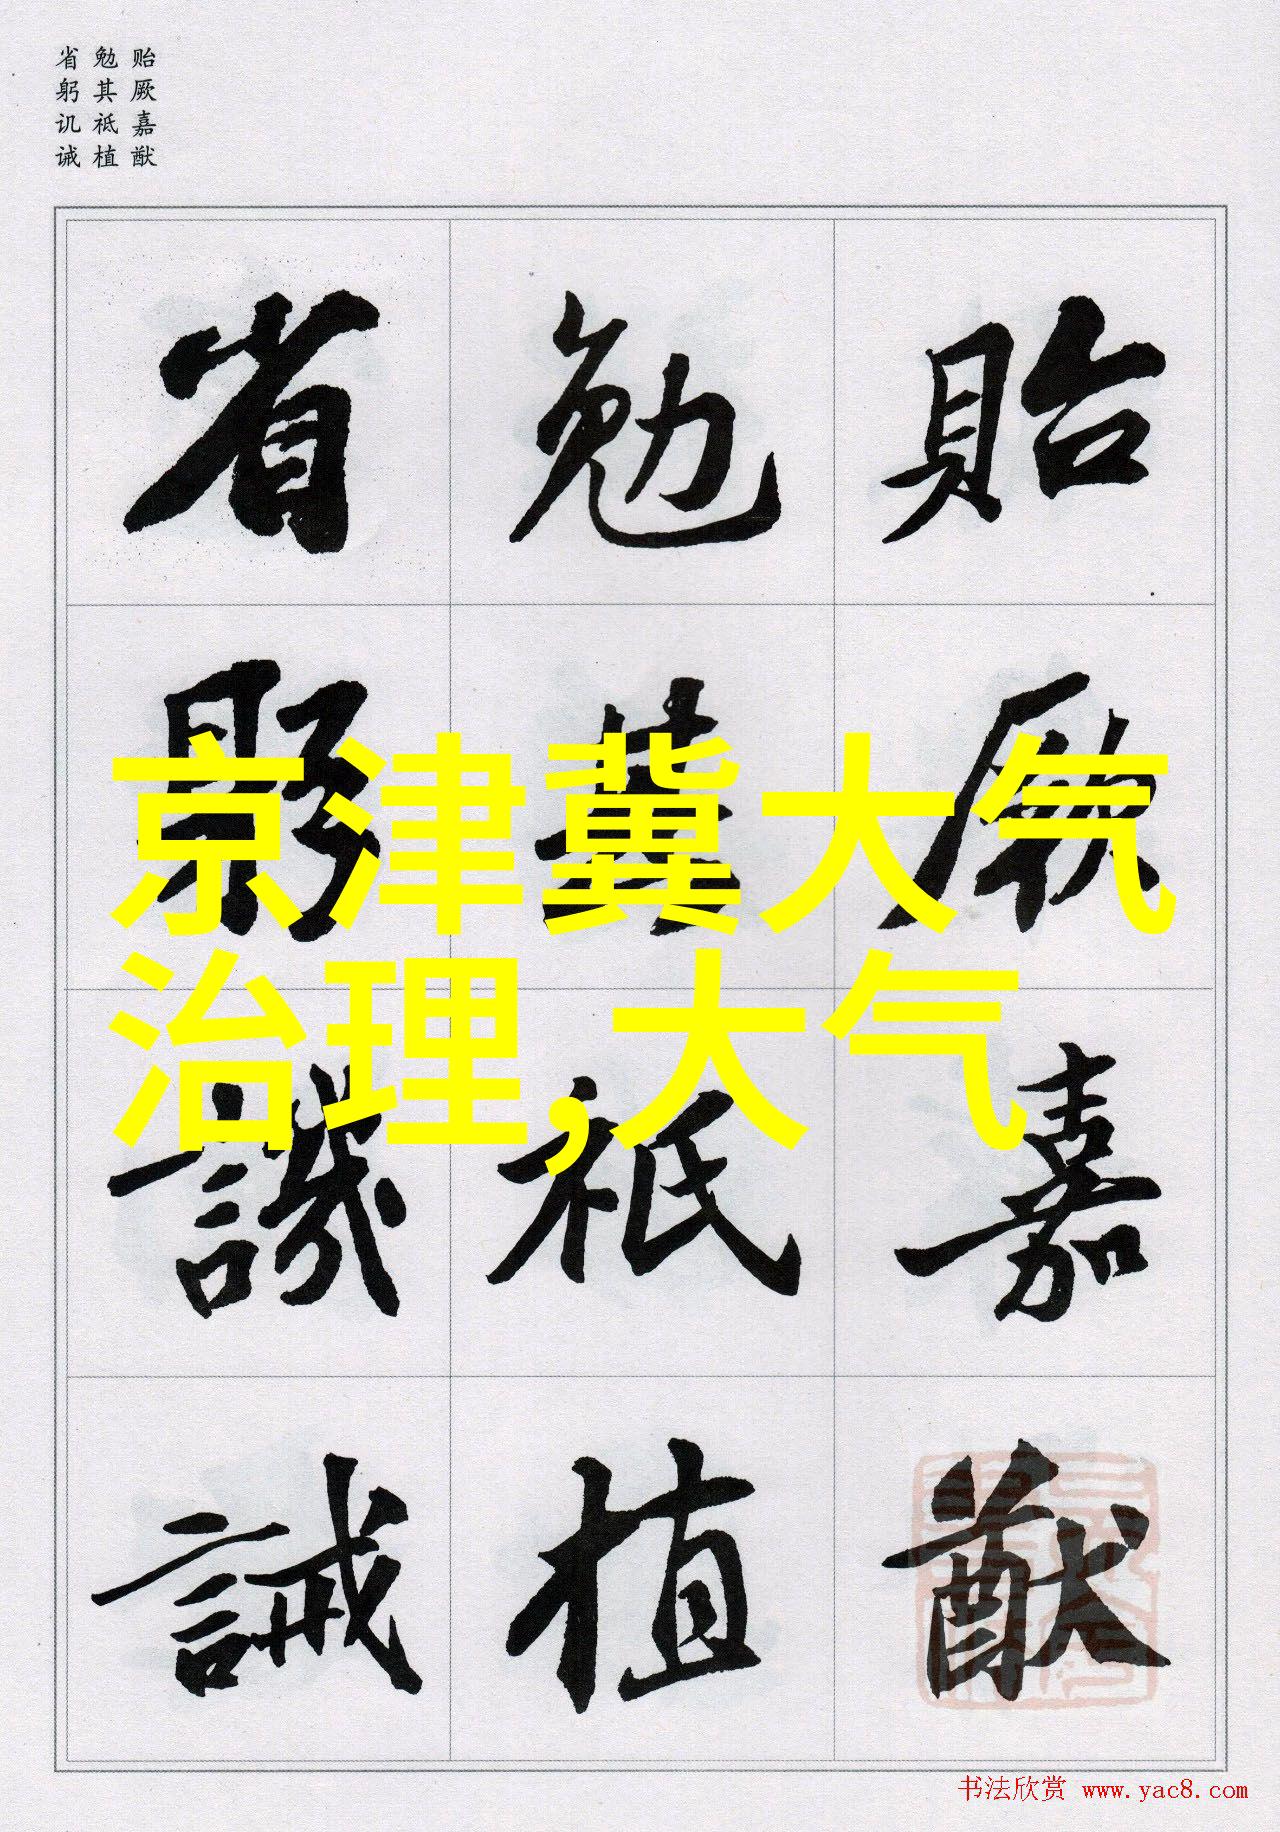 贻厥嘉猷
勉其祗植
省躬讥诫
貽厥嘉猷
勉其祗植
省躬譏誡
京津冀大气
治理,大气
书法欣赏 www.yac8.com